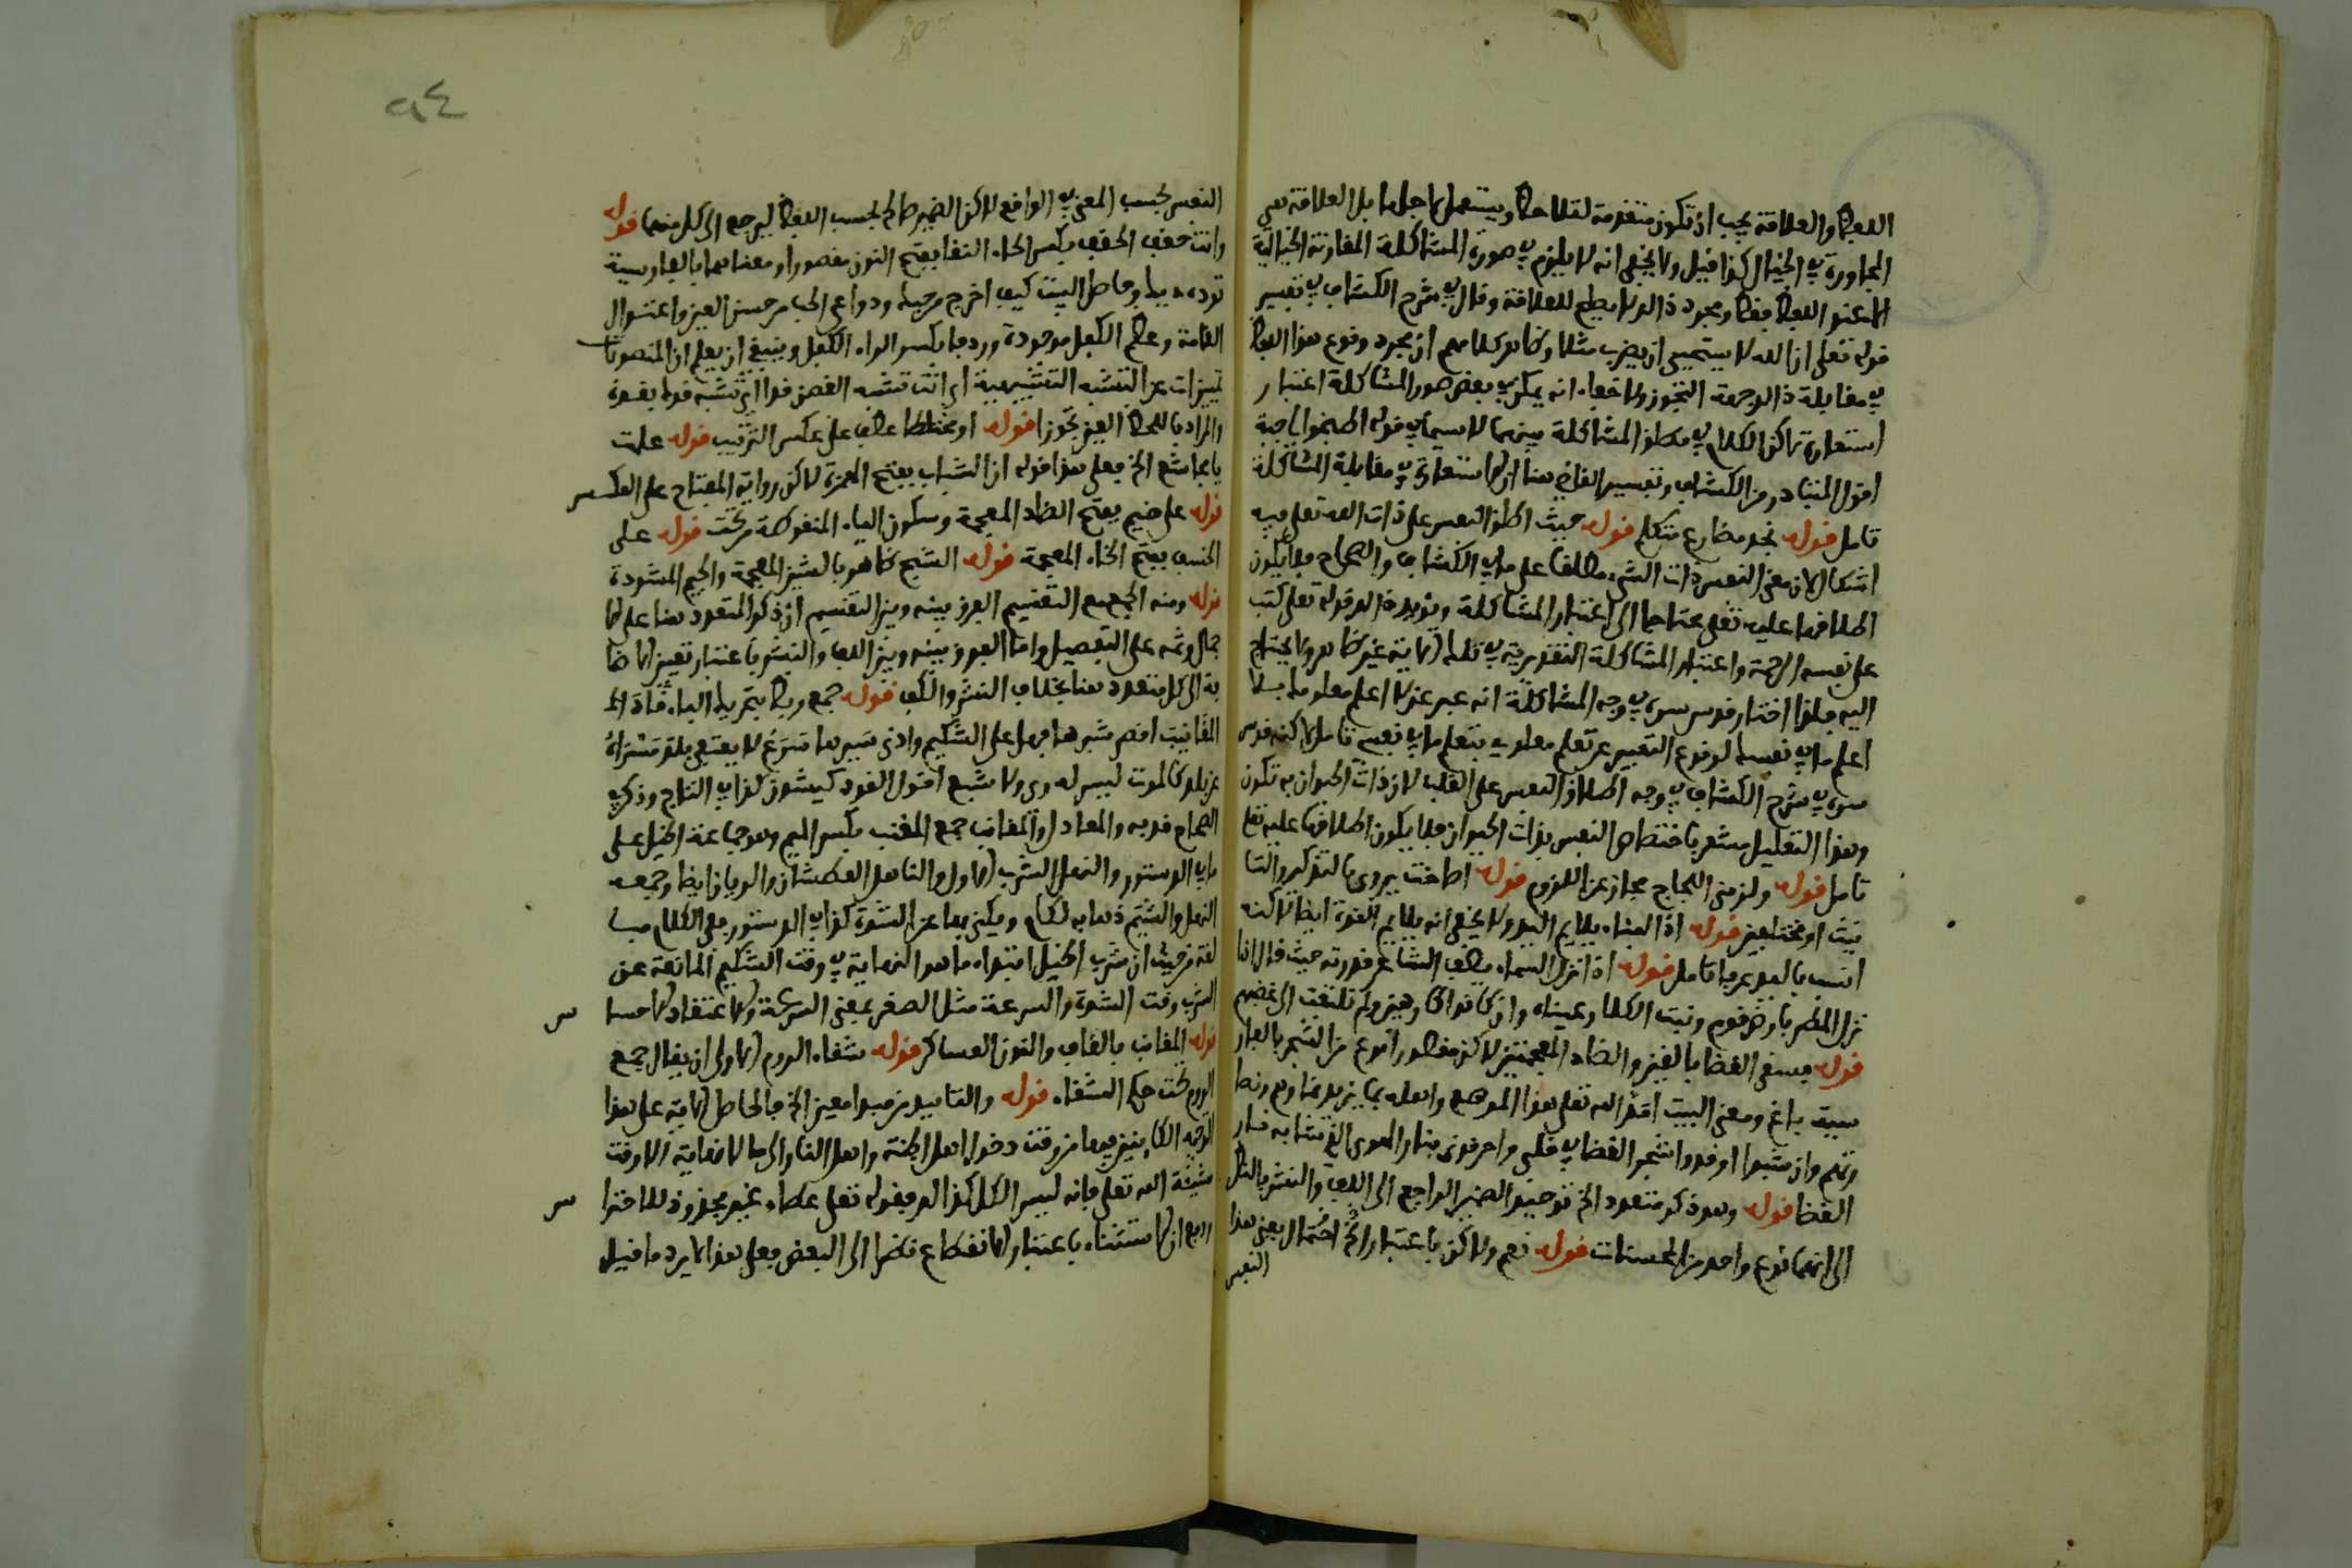 اللفظ والعلاقة يجب ان تكون متقدمة لتلاحظ ويستعمل لاجلها بل العلاقة هي
المجاورة في الخيال كذا قيل ولا يخفى انه لا يلزم في صورة المشاكلة المقارنة الخيالية
اللفظ فقط ومجرد ذالك لا يصلح للعلاقة وقال في شرح الكشاف في تفسير
قوله تعلى ان الله لا يستحيي ان يضرب مثلا وظاهر كلامهم ان مجرد وقوع هذا اللفظ
في مقابلة ذالك جهة التجوز ولا خفاء انه يمكن في بعض صور المشاكلة اعتبار
استعارة لاكن الكلام في مطلق المشاكلة سيما لا سيما في قوله اطبخوا لي جبة
اقول المتبادر من الكشاف وتفسير القاضي هنا ان الاستعارة في مقابلة المشاكلة
تامل قوله نجد مضارع متكلم قوله حيث اطلق النفس على ذات الله تعلى فيه
اشكال لان معنى النفس ذات الشيء مطلقا على ما في الكشاف والصحاح فلا يكون
اطلاقها عليه تعلى محتاجا الى اعتبار المشاكلة ويؤيده قوله تعلى كتب
على نفسه الرحمة واعتبار المشاكلة التقديرية في تلك الاية غير ظاهر ولا يحتاج
اليه فلذا اختار قدس سره في وجه المشاكلة انه عبر عن لا اعلم معلومك بلا
اعلم ما في نفسك لوقوع التعبير عن تعلم معلومي بتعلم ما في نفسي تامل لاكنه قدس
سره في شرح الكشاف في وجه اطلاق النفس على القلب لان ذات الحيوان به تكون
وهذا التعليل مشعر باختصاص النفس بذات الحيوان فلا يكون اطلاقها عليه تعلى
تامل قوله ولزمني اللجاج مجاز عن اللزوم قوله اصاخت يروى بالتذكير والتا
نيث او مختلفين قوله اذ الفناء يلايم اليد ولا يخفى انه يلايم القوة ايضا لاكنه
انسب باليد عرفا تامل قوله اذا نزل السماء يصف الشاعر قدرته حيث قال اذا
نزل المطر بارض قوم ونبت الكلا رعيناه وان كانوا كارهين ولم نلتفت الى غضبهم
قوله فسقى الغضا بالغين والضاد المعجمتين لاكن مقصورا نوع من الشجر بالفار
سية باغ ومعنى البيت اسقى الله تعلى هذا الموضع واهله بما يزيد نماءهم ونضا
رتهم وان شبوا اوقدوا شجر الغضا في قلبي واحرقوني بنار الهوى التي تشابه نار
الغضا قوله وهو ذكر متعدد الخ توحيد الضمير الراجع الى اللف والنشر بالنظر
الى انهما نوع واحد من المحسنات قوله نعم ولاكن باعتبار الخ احتمال يعني هذا
النفس
النفس بحسب المعنى في الواقع لاكن الضمير صالح بحسب اللفظ ليرجع الى كل منهما قوله
وانت حقف الحقف بكسر الحاء النقا بفتح النون مقصورا ومعناهما بالفارسية
توده ريك وحاصل البيت كيف اخرج من حبك ودواعي الحب من حسن العين واعتدال
القامة وعظم الكفل موجودة وردفا بكسر الراء الكفل وينبغي ان يعلم ان المنصوبات
تمييزات عن النسبة التشبيهية اي انت تشبه الغصن قدا اي تشبه قدك بقده
والمراد باللحظ العين تجوزا قوله او مختلطا عطف على عكس الترتيب قوله علمت
يا مجاشع الخ فعلى هذا قوله ان الشباب بفتح الهمزة لاكن رواية المفتاح على العكس
قوله على ضيم بفتح الضاد المعجمة وسكون الياء المنقوطة من تحت قوله على
الخسف بفتح الخاء المعجمة قوله الشج ظاهر بالشين المعجمة والجيم المشددة
قوله ومنه الجمع مع التقسيم الفرق بينه وبين التقسيم ان ذكر المتعدد هنا على الا
جمال وثمه على التفصيل واما الفرق بينه وبين اللف والنشر فباعتبار تعيين الاضا
فة الى كل متعدد هنا بخلاف النشر واللف قوله جمع ربض بتحريك الباء قاد ال
المقانب اقصى شربها نهل على الشكيم وادنى سيرها سرع لا يعتقي بلد مسراه
عن بلد كالموت ليس له ري ولا شبع اقول القود كيشون كذا في التاج وذكر في
الصحاح فدبه والمعادل والمقانب جمع المقنب بكسر الميم وهو جماعة الخيل على
ما في الدستور والنهل الشرب الاول والناهل العطشان والريان ايضا وجمعه
النهل والشكيم دهانه لكام ويكنى بها عن الشدة كذا في الدستور ففي الكلام مبا
لغة من حيث ان شرب الخيل ابتداء ما هو النهاية في وقت الشكيم المانعة عن
الشرب وقت الشدة والسرعة مثل الصغر بمعنى السرعة والاعتقاد الاحسا
قوله المقانب بالقاف والنون العساكر قوله شقاء الروم الاولى ان يقال جمع
الروم تحت حكم الشقاء قوله والتابيد من مبدا معين الخ فالحاصل الاية على هذا
الوجه الكاينين فيها من وقت دخول اهل الجنة واهل النار الى ما لا نهاية الا وقت
مشيئة الله تعلى فانه ليس الكل كذالك فقوله تعلى عطاء غير مجذوذ للاحترا
س ان الاستثناء باعتبار الانقطاع نظرا الى البعض فعلى هذا لا يرد ما قيل